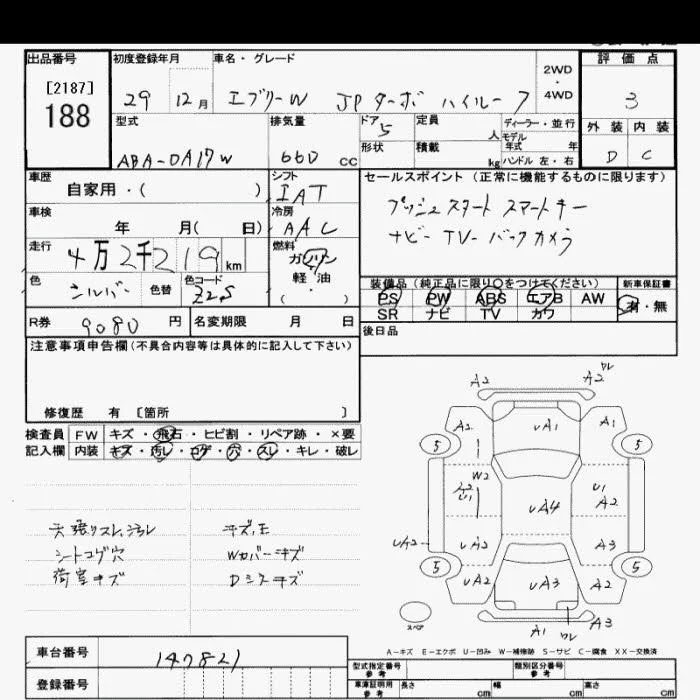 出品番号
[2187]
188
初度登録年月
29 12月
車名・グレード
エブリーW JPターボ ハイルーフ
2WD
・
4WD
評価点
3
外装 内装
D C
型式
ABA-DA17W
排気量
660 CC
ドア
5
形状
定員
人
積載
kg
ディーラー・並行
モデル
年式 年
ハンドル 左・右
車歴
自家用・( )
シフト
IAT
車検
年 月( 日)
冷房
AAC
走行
4万2千219km
燃料
ガソリン
軽油
・
( )
色
シルバー
色替
色コード
Z2S
R券
9080円
名変期限 月 日
セールスポイント(正常に機能するものに限ります)
プッシュスタート スマートキー
ナビー TVーバックカメラ
装備品(純正品に限り〇をつけてください)
PS PW ABS エアB AW
SR ナビ TV カワ
新車保証書
有・無
後日品
注意事項申告欄(不具合内容等は具体的に記入して下さい)
修復歴 有 [箇所 ]
検査員
記入欄
FW キズ・飛石・ヒビ割・リペア跡・×要
内装 キズ・汚レ・コゲ・穴・スレ・キレ・破レ
天張りスレ、汚レ
シートコゲ穴
荷室キズ
Wカバーキズ
車台番号
147821
登録番号
A2
A2
ワレ
A2
UA1
A1
5
5
W2
U1
UA4
U1
A2
UA2
UA2
A3
5
5
UA2
UA3
A2
スペア
A1
ワレ
A3
A-キズ E-エクボ U-凹み W-補修跡 S-サビ C-腐食 XX-交換済
型式指定番号
参考
類別区分番号
参考
車庫証明用
参考
長さ cm
幅 cm
高さ cm